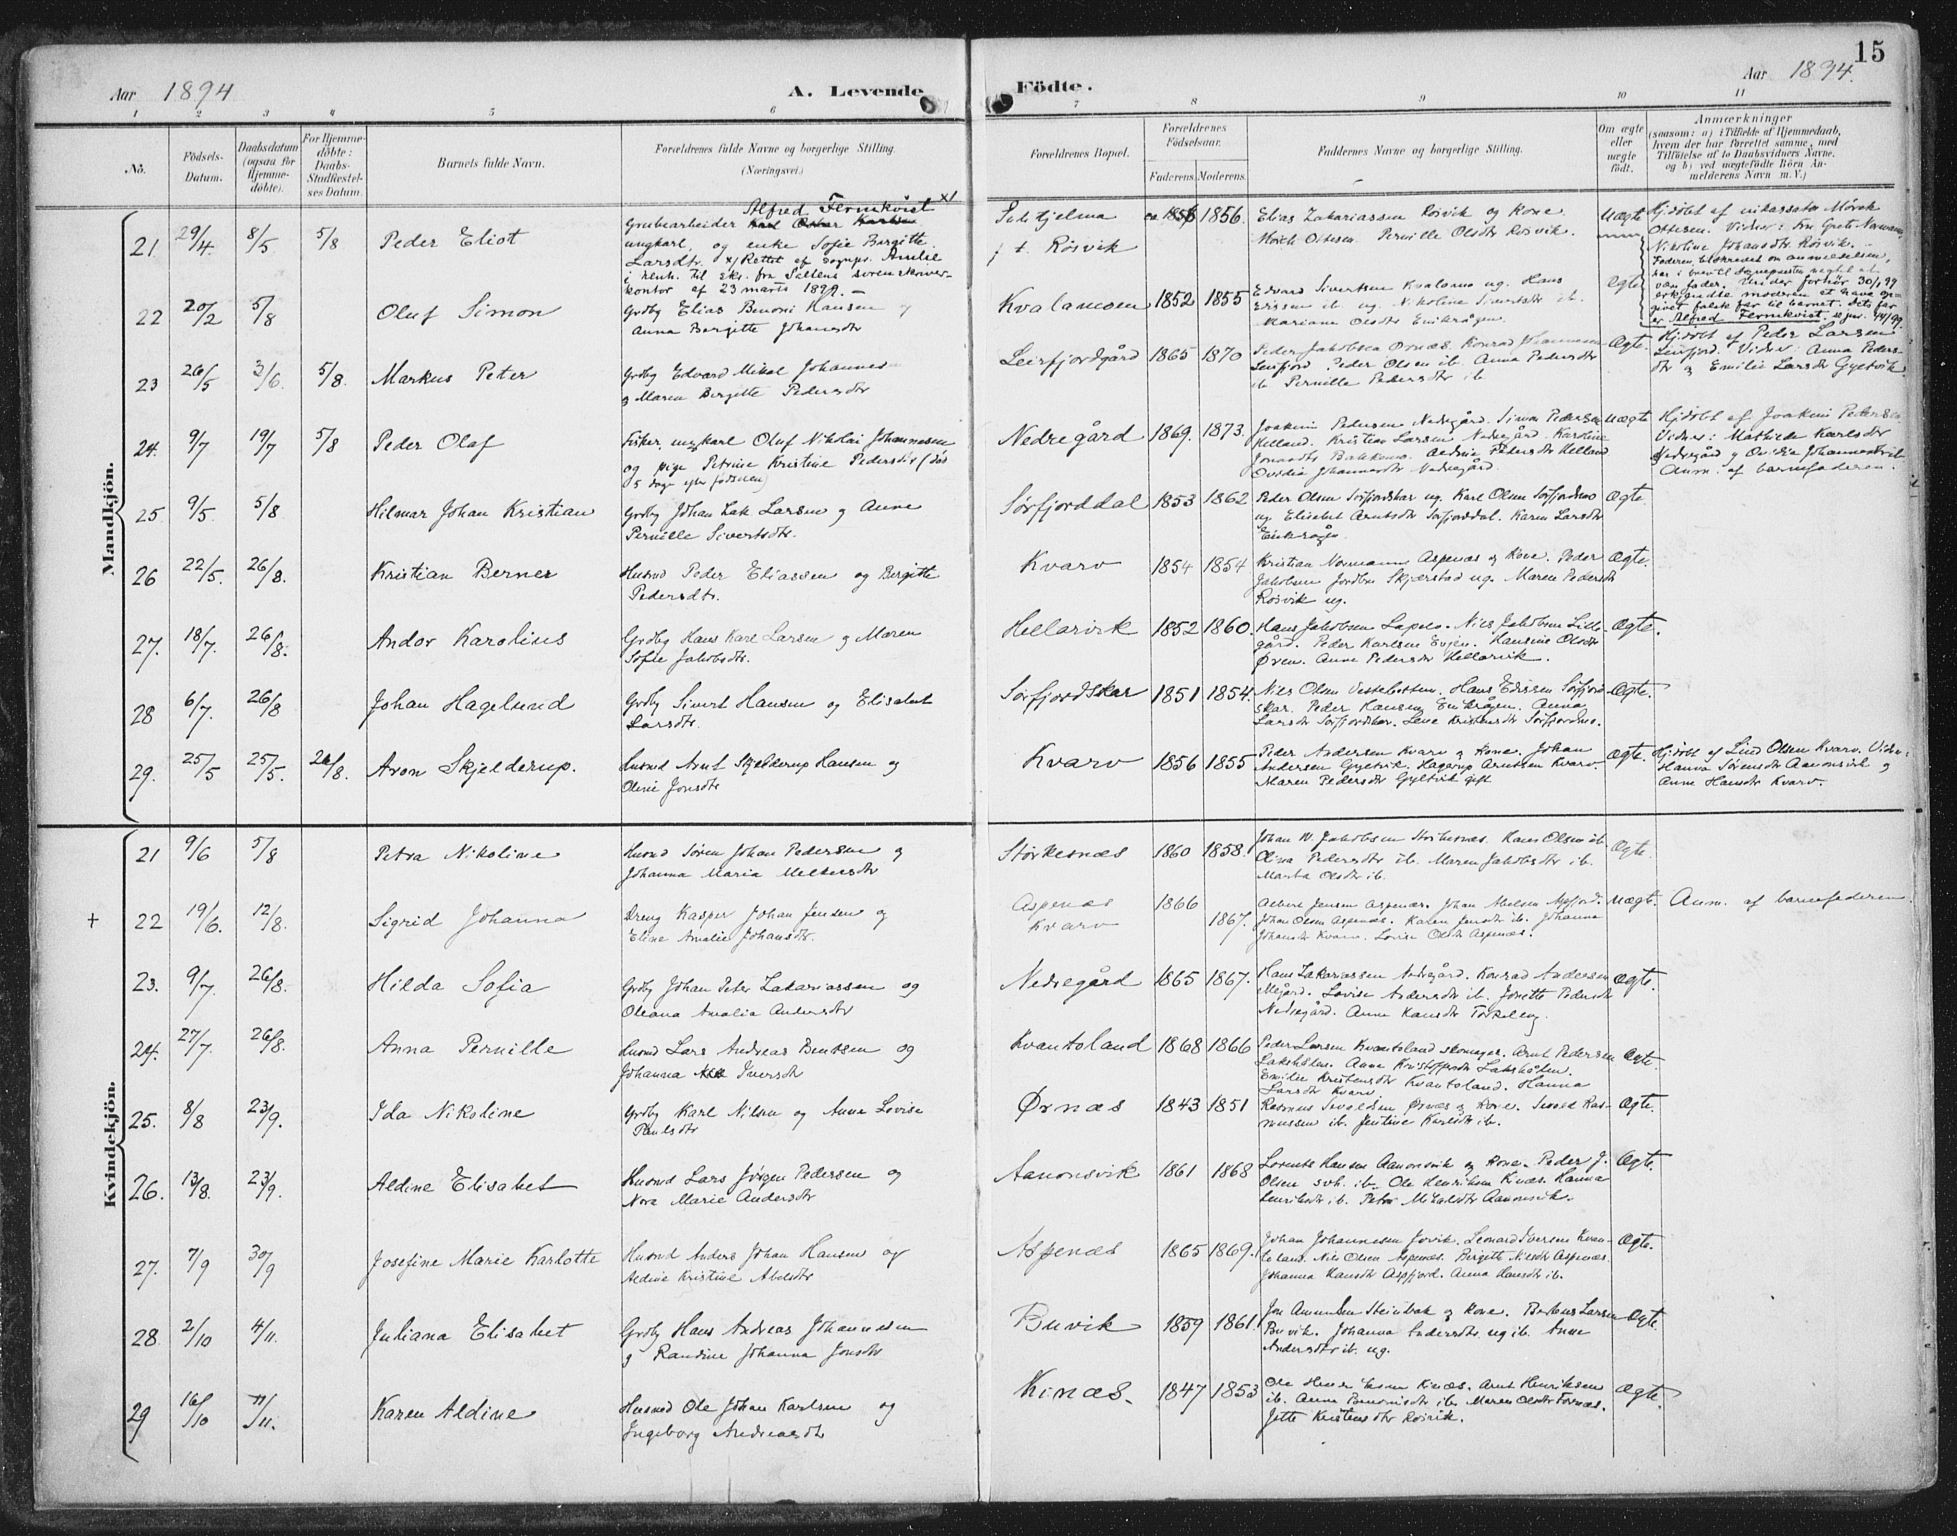 15
Aar 1894
A. Levende
Födte.
Aar 1894.
1 2 3 4 5 6 7 8 9 10 11
No.
Födsels-Datum.
Daabsdatum (ogsaa for Hjemmedöbte).
For Hjemmedöbte: Daabs-Stadfæstelses Datum.
Barnets fulde Navn.
Forældrenes fulde Navne og borgerlige Stilling.
(Næringsvei.)
Forældrenes Bopæl.
Forældrenes Födselsaar.
Faderens. Moderens.
Faddernes Navne og borgerlige Stilling.
Om ægte eller uægte födt.
Anmærkninger
(saasom: a) i Tilfælde af Hjemmedaab, hvem der har forrettet samme, med Tilföielse af to Daabsvidners Navne, og b) ved uægtefödte Börn Anmelderens Navn m. V.)
Mandkjön.
21 29/4 8/5 5/8 Peder Eliot
Alfred Fernkvist x)
Grubearbeider
ungkarl, og enke Sofie Birgitte
Larsdtr. x) Rettet af sognepr. Amlie
kontor af 23 marts 1899. —
f. t. Røsvik 1856.
Elias Zakariassen Røsvik og kone
Ottesen. Pernille Olsdtr Røsvik.
Uægte
22 20/2 5/8 Oluf Simon
Grdby Elias Benoni Hansen og
Anna Bergitte Johansdtr
Kvalamoen 1852 1855
Mariane Olsdtr
Ægte
er Alfred Fernkvist.
23 26/5 3/6. 5/8. Markus Peter
Grdby Edvard Mikal Johannes
g Maren Birgitte Pedersdtr
Leirfjordgård 1865 1870
Leirfjord Peder Olsen ib. Anna Pedersdtr
ib Pernille Pedersdtr ib
Ægte.
Hjdøbt af Peder Larsen
Leirfjord. Vidner Anna Peders-
dtr og Emilie Larsdtr Gyltvik.
24. 9/7 19/7 5/8 Peder Olaf
Fisker, ungkarl Oluf Nikolai Johannesen
og pige Petrine Kristine Pedersdtr (død
5 dage efter fødselen)
Nedregård 1869. 1873.
Joakim Pedersen Nedregård. Simon Pedersen
Helland. Kristian Larsen Nedregård. Karoline
Ovidia Johannesdtr Nedregård.
uægte
Hjdøbt af Joakim Pedersen
Vidner: Mathilde Karlsdtr
Nedregård og Ovidia Johannesdtr ib
Anm. af barnefaderen.
25 9/5 5/8 Hilmar Johan Kristian
Grdby Johan Zak. Larsen og Anne
Pernille Sivertsdtr.
Sørfjorddal 1853 1862
Peder Olsen Sørfjordskar ug. Karl Olsen Sørfjordmo
ug Elisabet Arntsdtr Sørfjorddal. Karen Larsdtr
Ægte.
26 22/5. 26/8. Kristian Berner
Husmd Peder Eliassen og Birgitte
Pedersdtr.
Kvarv 1854 1854
Kristian Normann Aspenæs og kone. Peder
Jakobsen Jordbru Skjærstad ug. Maren Pedersdtr
Røsvik ug.
Ægte.
27. 18/7. 26/8. Andor Karolius
Grdby Hans Karl Larsen og Maren
Sofie Jakobsdtr.
Hellarvik 1852 1860.
Hans Jakobsen Løpelv. Nils Jakobsen Lille-
gård. Peder Karlsen Evjen. Hansine Olsdtr
Øren. Anne Pedersdtr Hellarvik.
Ægte.
28 6/7. 26/8 Johan Hagelund
Grdby Sivert Hansen og Elisabet
Larsdtr.
Sørfjordskar 1851 1854.
Nils Olsen Vestebotten. Hans Edissen Sørfjord
skar. Peder Hansen. Anna
Larsdtr Sørfjordskar. Lene Kristensdtr Sørfjordmo.
Ægte.
29. 25/5 25/5. 26/8. Aron Skjelderup.
Husmd Arnt Skjelderup Hansen og
Oline Jonsdtr
Kvarv 1856 1855
Peder Andersen Kvarv og kone. Johan
Andersen Gyltvik. Hagerup Arntsen Kvarv.
Maren Pedersdtr Gyltvik gift
Ægte.
Hjdøbt af Lind Olsen Kvarv. Vidn:
Hanna Sørensdtr Aanonsvik og
Anne Hansdtr Kvarv.
Kvindekjön.
21 9/6 5/8 Petra Nikoline
Husmd Søren Johan Pedersen og
Johanna Maria Meltersdtr
Størkesnæs 1860 1858.
Johan W. Jakobsen Størkesnæs. Hans Olsen ib.
Olina Pedersdtr ib. Maren Jakobsdtr ib.
Marta Olsdtr ib.
Ægte.
+ 22 19/6. 12/8. Sigrid Johanna
Dreng Kasper Johan Jensen og
Eline Amalie Johansdtr.
Aspenæs 1866
Kvarv 1867.
Albert Jensen Aspenæs. Johan Abelsen Aspfjord.
Johan Olsen Aspenæs. Karen Jensdtr ib. Johanna
Johansdtr Kvarv. Lovise Olsdtr Aspenæs.
uægt.
Anm. af barnefaderen
23. 9/7 26/8. Hilda Sofia
Grdby Johan Peter Zakariassen og
Oleana Amalia Andersdtr
Nedregård 1865 1867.
Hans Zakariassen Nedregård. Konrad Andersen
Megård. Lovise Andersdtr ib. Jonette Pedersdtr
Nedregård. Anne Hansdtr Torkeleng.
Ægte.
24. 27/7 26/8. Anna Pernille
Husmd Lars Andreas Bentsen og
Johanna Iversdtr
Kvantoland 1868 1866
Peder Larsen Kvantoland skomager. Arnt Pedersen
Lakshølen. Anne Kristoffersdtr Lakshølen.
Emilie Kristensdtr Kvantoland. Hanna
Larsdtr Kvarv
Ægte.
25. 8/8 23/9. Ida Nikoline
Grdby Karl Nilsen og Anne Lovise
Paulsdtr
Ørnæs 1843 1851
Rasmus Sivaldsen Ørnæs og kone. Sivald Ras-
mussen ib. Jentine Karlsdtr ib.
Ægte.
26. 13/8. 23/9. Aldine Elisabet
Husmd Lars Jørgen Pedersen og
Nora Marie Andersdtr
Aanonsvik 1861 1868
Lorents Hansen Aanonsvik og kone. Peder J.
Olsen svh. ib. Ole Henriksen Kinæs. Hanna
Henriksdtr ib. Petra Mikalsdtr Aanonsvik.
Ægte.
27. 7/9 30/9 Josefine Marie Karlotte
Husmd Anders Johan Hansen og
Aldine Kristine Abelsdtr
Aspenæs 1865 1869.
Johan Johannesen Jovik. Leonard Iversen Kvan-
toland. Nils Olsen Aspenæs. Birgitte Nilsdtr Aspenæs.
Johanna Hansdtr Aspfjord. Anna Hansdtr ib.
Ægte.
28. 2/10 4/11. Juliana Elisabet
Grdby Hans Andreas Johannesen
g Randine Johanna Jonsdtr
Buvik 1859 1861.
Jon Amundsen Steinbak og kone. Larsen
Buvik. Johanna Andersdtr ug ib. Anne
Andersdtr ib. ug.
Ægte
29 16/10 11/11. Karen Aldine
Husmd Ole Johan Karlsen og
Ingeborg Andreasdtr
Kinæs. 1847 1853
Kinæs. Arnt Henriksen
ib. Anna Benonisdtr ib. Maren Olsdtr Tornæs.
Jette Kristensdtr Røsvik.
Ægte.